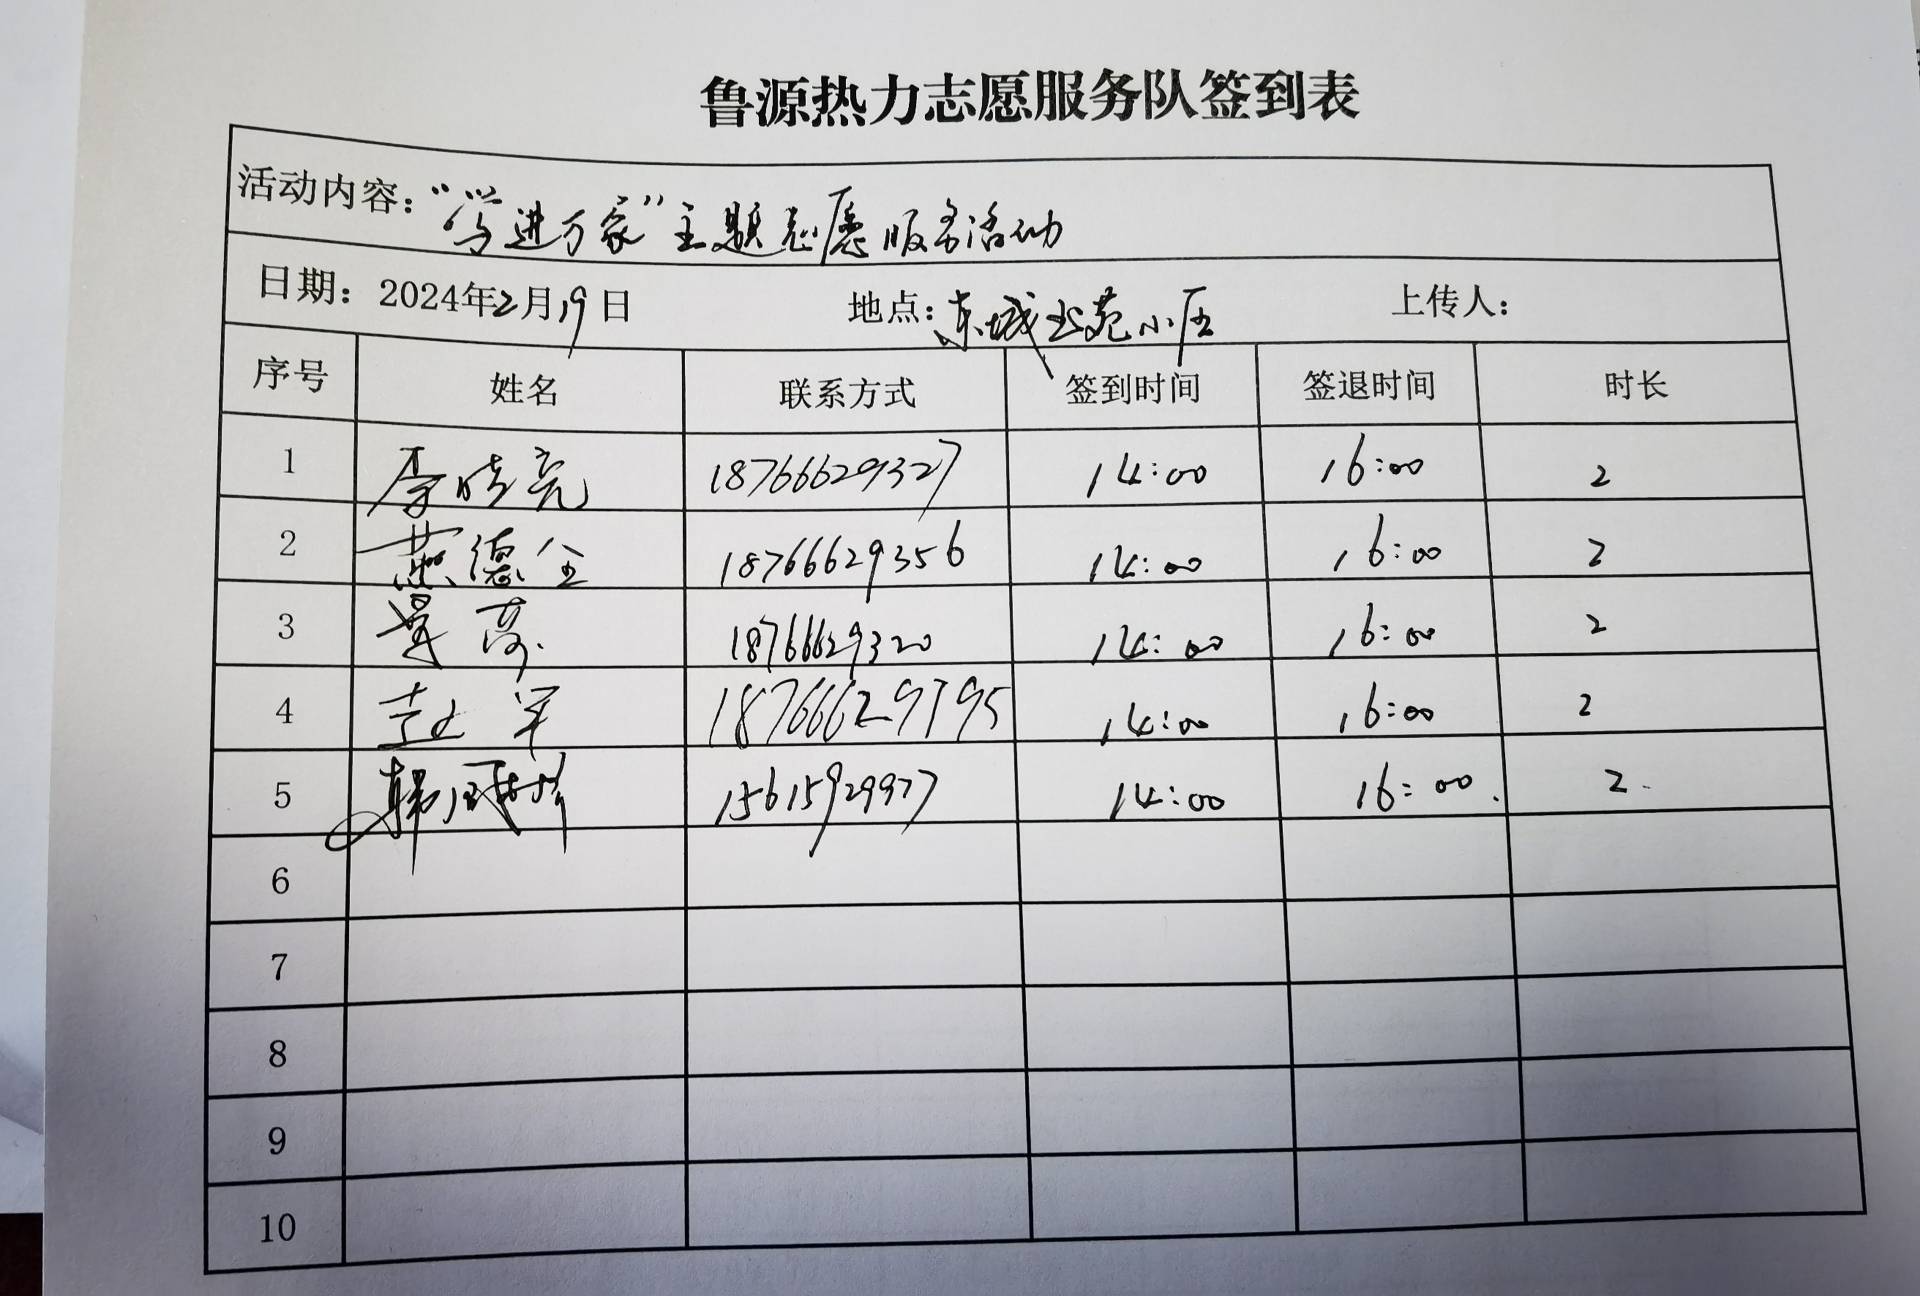 鲁源热力志愿服务队签到表
活动内容：“学进万家”主题志愿服务活动
日期：2024年2月19日 地点：东城 苑小区 上传人：
序号 姓名 联系方式 签到时间 签退时间 时长
1 李皓亮 18766629327 14:00 16:00 2
2 燕德全 18766629356 14:00 16:00 2
3 18766629320 14:00 16:00 2
4 赵军 14:00 16:00 2
5 15615929977 14:00 16:00 2
6
7
8
9
10